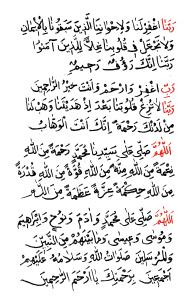 رَبَّنَا اغْفِرْ لَنَا وَلِإِخْوَانِنَا الَّذِينَ سَبَقُونَا بِالْإِيمَانِ
وَلَا تَجْعَلْ فِي قُلُوبِنَا غِلًّا لِلَّذِينَ آمَنُوا
رَبَّنَا إِنَّكَ رَءُوفٌ رَحِيمٌ
رَبِّ اغْفِرْ وَارْحَمْ وَأَنْتَ خَيْرُ الرَّاحِمِينَ
رَبَّنَا لَا تُزِغْ قُلُوبَنَا بَعْدَ إِذْ هَدَيْتَنَا وَهَبْ لَنَا
مِنْ لَدُنْكَ رَحْمَةً إِنَّكَ أَنْتَ الْوَهَّابُ
اللَّهُمَّ صَلِّ عَلَى سَيِّدِنَا مُحَمَّدٍ رَحْمَةً مِنَ اللهِ
نِعْمَةً مِنَ اللهِ مِنَّةً مِنَ اللهِ قُوَّةً مِنَ اللهِ قُدْرَةً
مِنَ اللهِ حِكْمَةً عِزَّةً عَظَمَةً مِنَ اللهِ
اللَّهُمَّ صَلِّ عَلَى مُحَمَّدٍ وَآدَمَ وَنُوحٍ وَإِبْرَاهِيمَ
وَمُوسَى وَعِيسَى وَمَا بَيْنَهُمْ مِنَ النَّبِيِّينَ
وَالْمُرْسَلِينَ صَلَوَاتُ اللهِ وَسَلَامُهُ عَلَيْهِمْ
أَجْمَعِينَ بِرَحْمَتِكَ يَا أَرْحَمَ الرَّاحِمِينَ